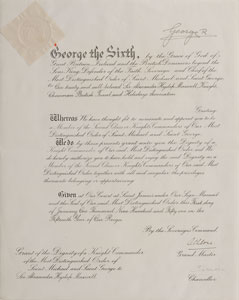 George R
George the Sixth, by the Grace of God of
Great Britain, Ireland and the British Dominions beyond the
Seas King, Defender of the Faith, Sovereign and Chief of the
Most Distinguished Order of Saint Michael and Saint George
to Our trusty and well beloved Sir Alexander Russell, Knight,
Greeting
Whereas We have thought fit to nominate and appoint you to be
a Member of the Second Class or Knights Commanders of Our Most
Distinguished Order of Saint Michael and Saint George
We do by these presents grant unto you the Dignity of a
Knight Commander of Our Most Distinguished Order and We
do hereby authorise you to have hold and enjoy the said Dignity as a
Member of the Second Class or Knights Commanders of Our Most
Distinguished Order together with all and singular the privileges
thereunto belonging or appertaining
Given at Our Court at Saint James's under Our Sign Manual
and the Seal of Our said Most Distinguished Order this First day
of January One Thousand Nine Hundred and Fifty-one in the
Fifteenth Year of Our Reign
By the Sovereign's Command
Grand Master
Grant of the Dignity of a Knight Commander
of the Most Distinguished Order of
Saint Michael and Saint George to
Sir Alexander Russell
Chancellor